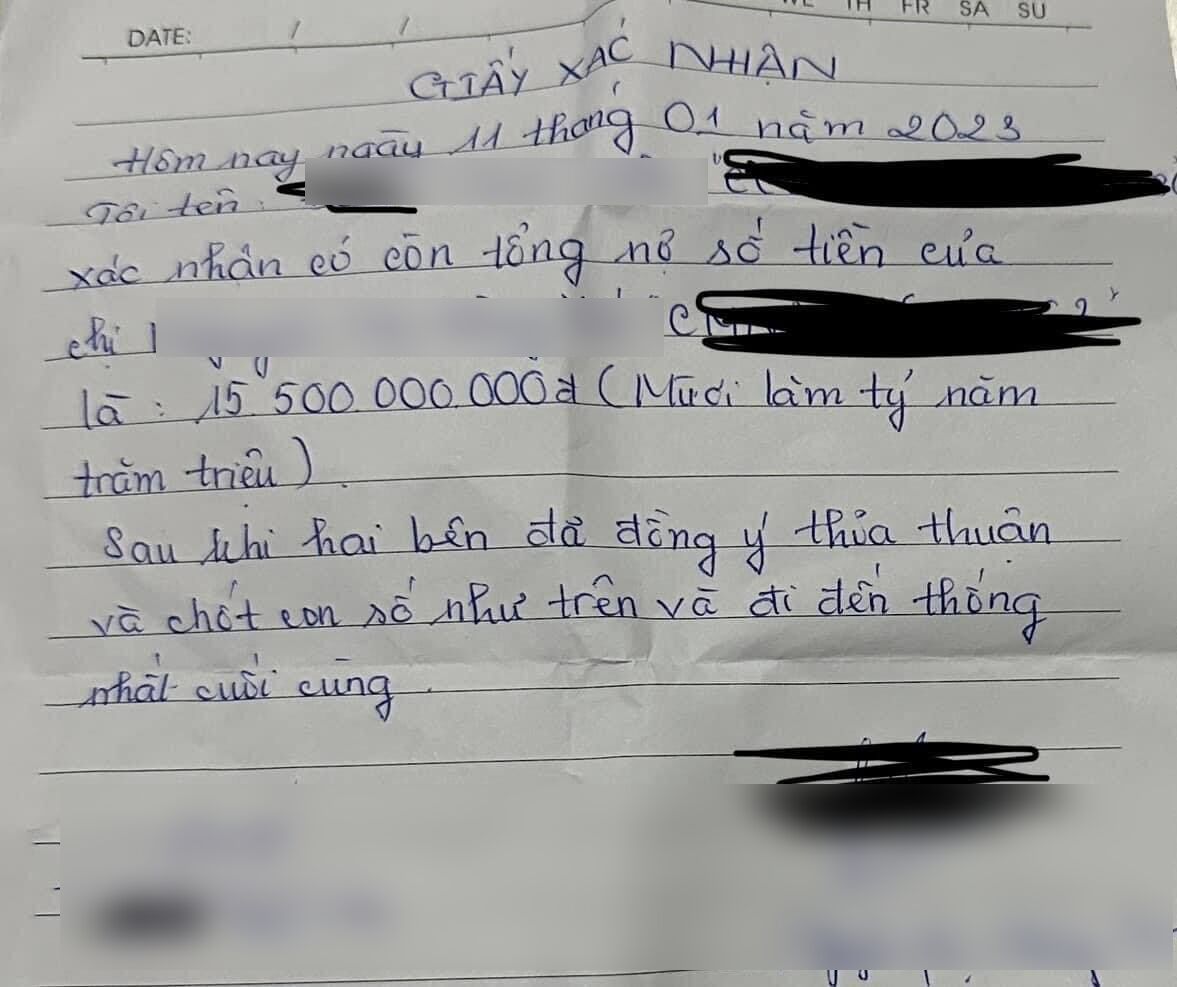 DATE: / / TH FR SA SU
GIẤY XÁC NHẬN
Hôm nay ngày 11 tháng 01 năm 2023
Tôi tên:
xác nhận có còn tổng nợ số tiền của
chị
là: 15 500 000 000đ (Mười lăm tỷ năm
trăm triệu).
Sau khi hai bên đã đồng ý thỏa thuận
và chốt con số như trên và đi đến thống
nhất cuối cùng.